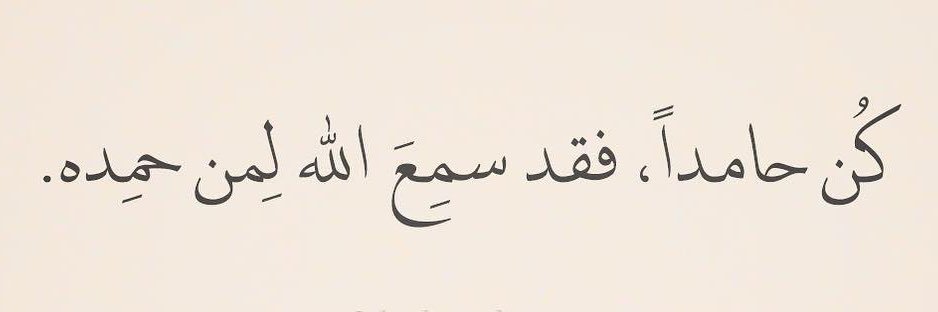 كُن حامداً، فقد سمِعَ الله لِمن حمِده.